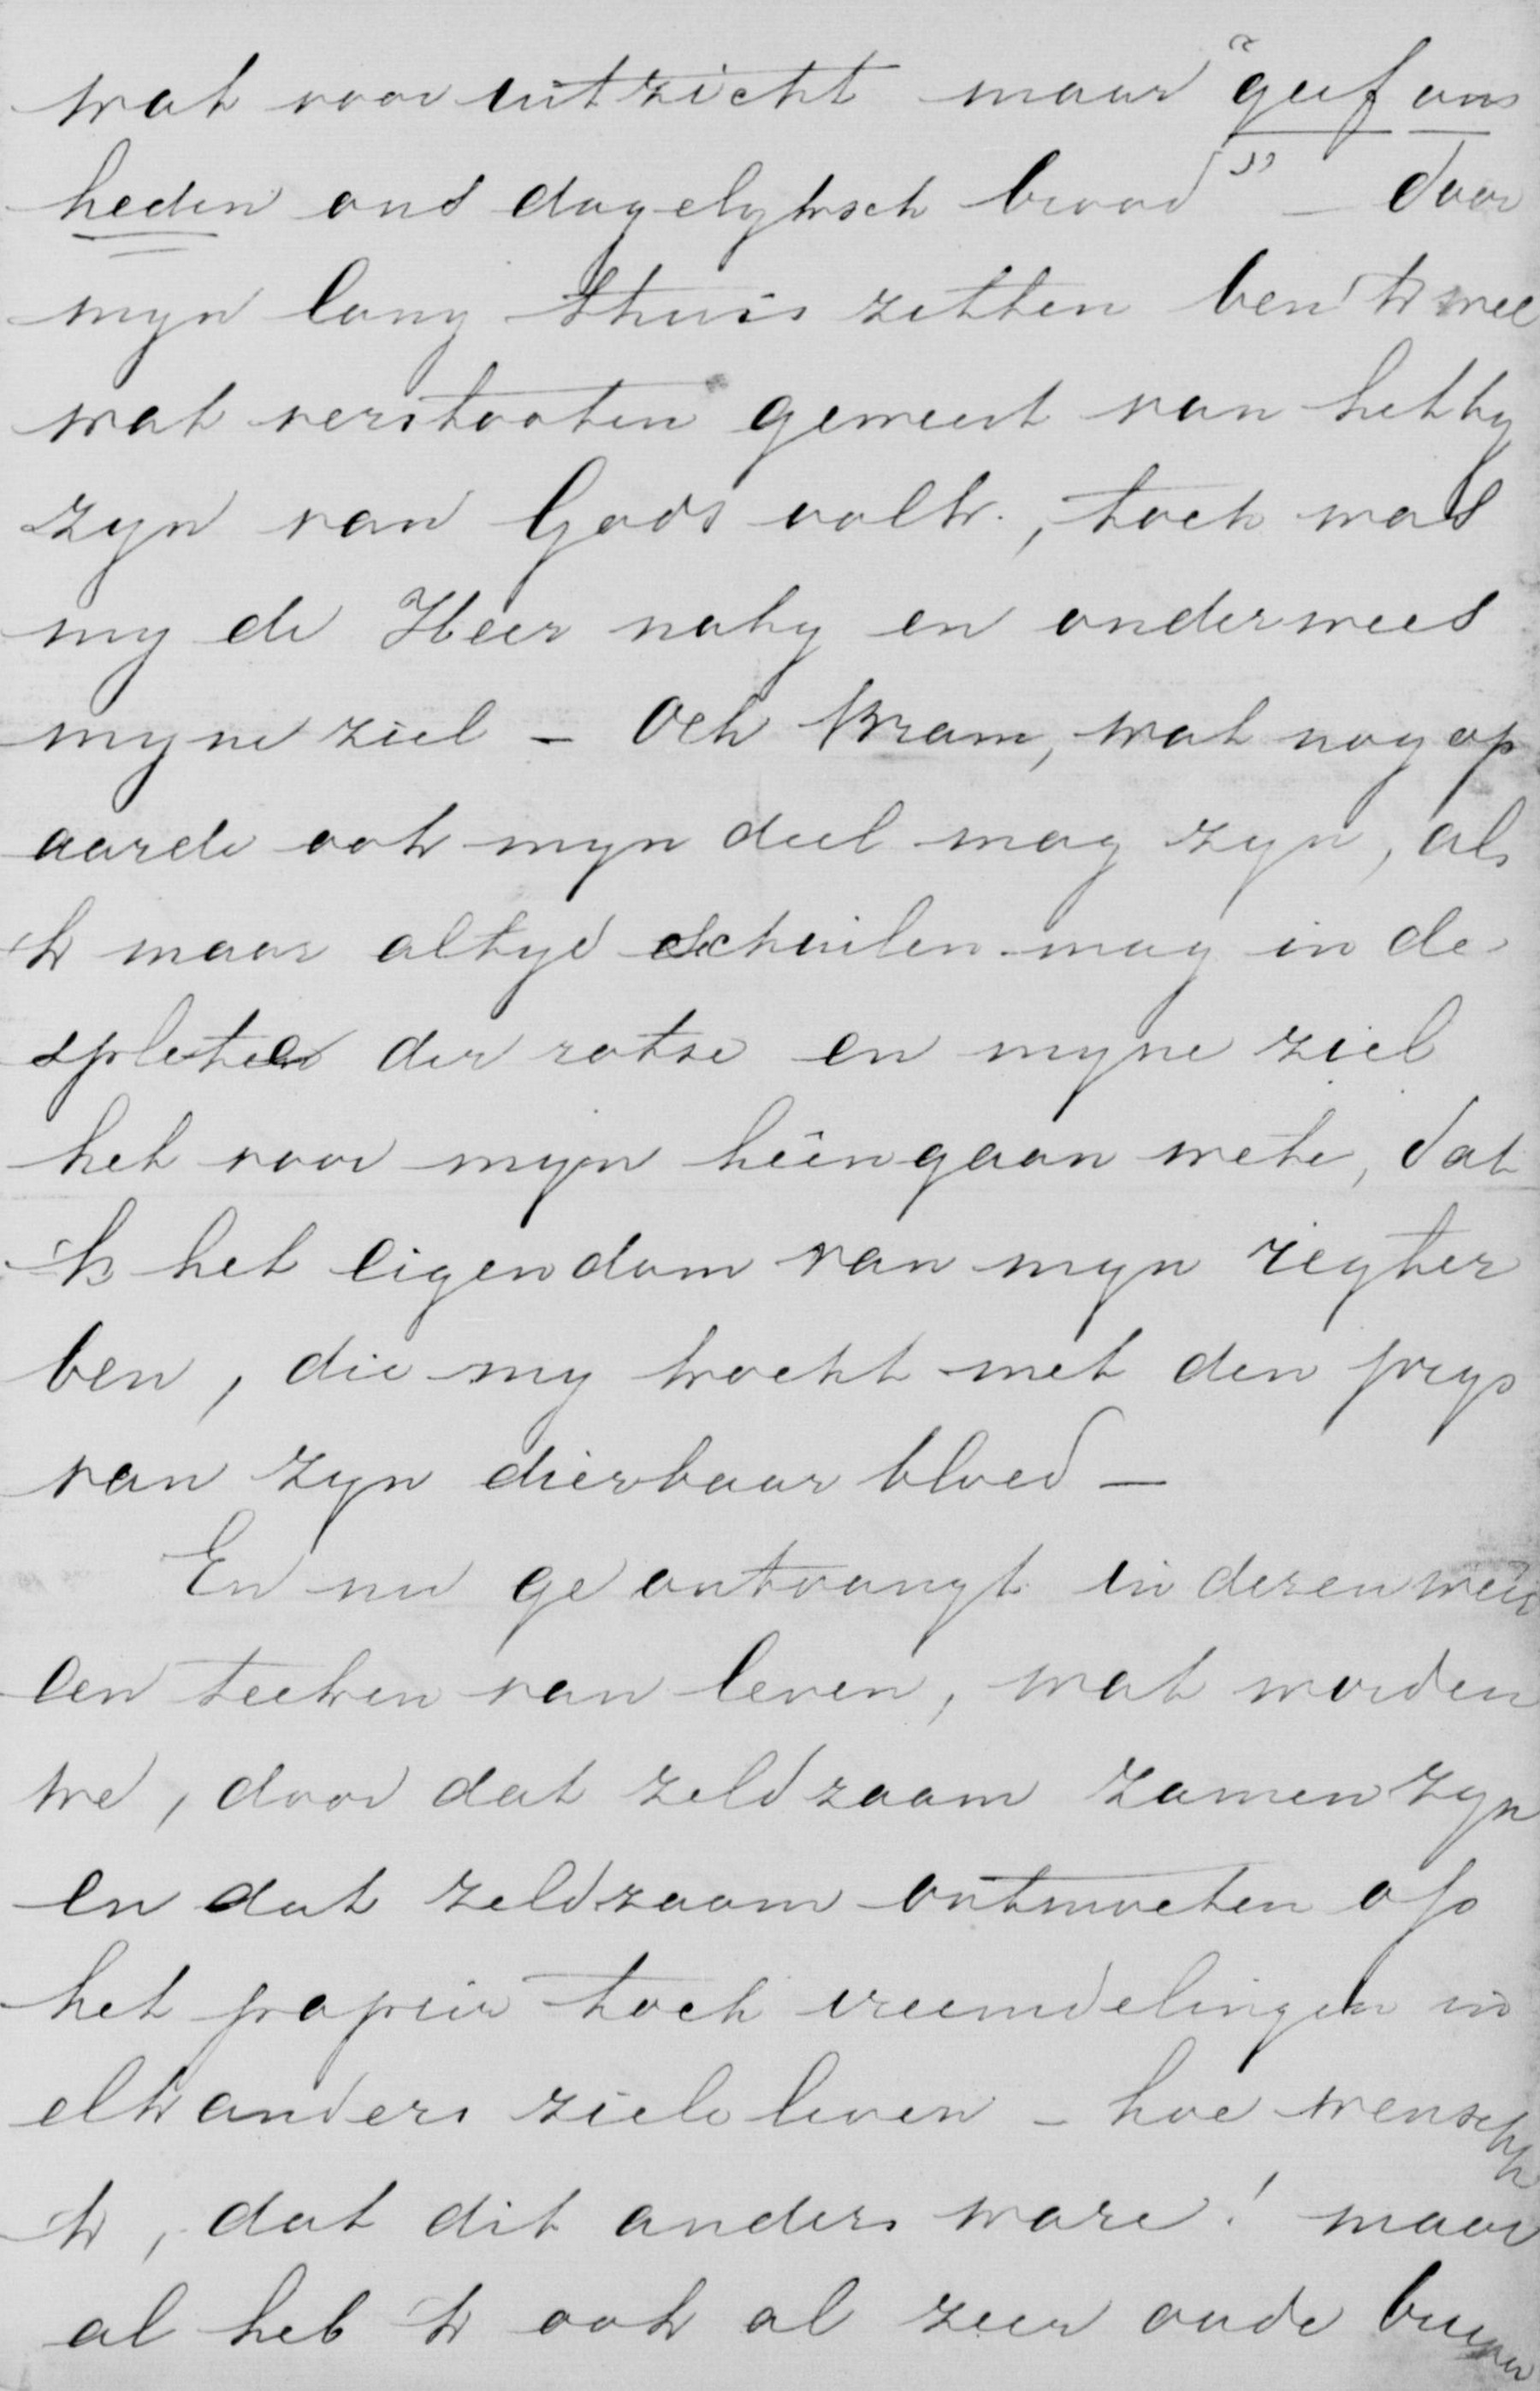 wat voor uitzicht maar "geef ons
heden ons dagelyksch brood" – door
myn lang thuis zitten ben 'k wel
wat verstooten geweest van het by
zyn van Gods volk., toch was
my de Heer naby en onderwees
myne ziel – Och Bram, wat nog op
aarde ook myn deel mag zyn, als
'k maar altyd schuilen mag in de
spleten der rotse en myne ziel
het voor myn heengaan wete, dat
'k het eigendom van myn regter
ben, die my kocht met den prys
van zyn dierbaar bloed –
En nu ge ontvangt in dezen weer
een teeken van leven, wat worden
we, door dat zeldzaam zamen zyn
en dat zeldzaam ontmoeten op
het papier toch vreemdelingen in
elkanders ziele leven – hoe wensch
'k, dat dit anders ware! maar
al heb 'k ook al zeer oude